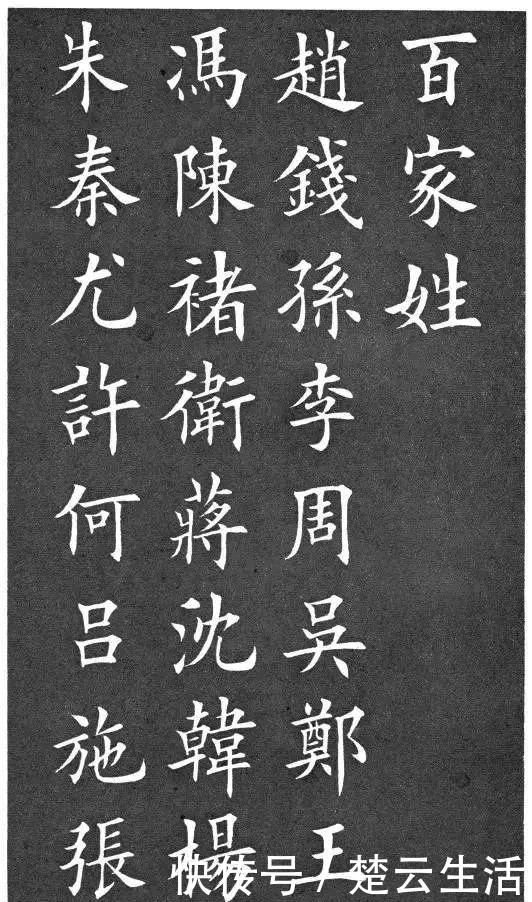 百家姓
趙錢孫李周吳鄭王
馮陳褚衛蔣沈韓楊
朱秦尤許何吕施張
快传号 / 楚云生活